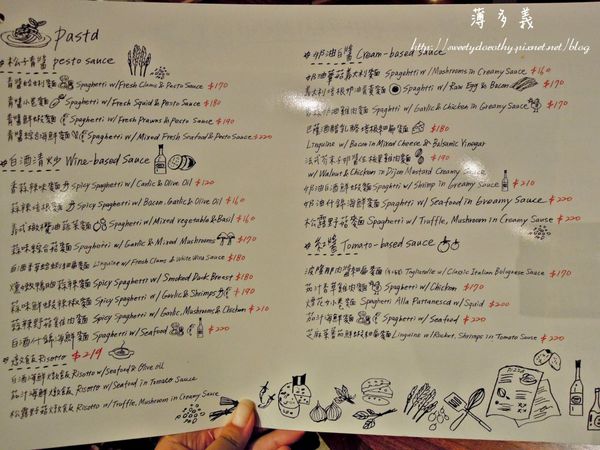 薄多義
http://sweetydorothy.pixnet.net/blog
Pasta
#松子青醬 pesto sauce
青醬蛤蜊麵 Spaghetti w/Fresh Clams & Pesto Sauce $170
青醬小卷麵 Spaghetti w/Fresh Squid & Pesto Sauce $180
青醬鮮蝦麵 Spaghetti w/Fresh Prawns & Pesto Sauce $190
青醬綜合海鮮麵 Spaghetti w/Mixed Fresh Seafood & Pesto Sauce $220
#白酒清炒 Wine-based Sauce
香蒜辣味麵 Spicy Spaghetti w/Garlic & Olive Oil $120
蒜辣培根麵 Spicy Spaghetti w/Bacon, Garlic & Olive Oil $160
義式橄欖油蔬菜麵 Spaghetti w/Mixed vegetable & Basil $160
蒜味綜合菇麵 Spaghetti w/Garlic & Mixed Mushrooms $170
Linguine w/Fresh Clams & White Wine Sauce $180
Spicy Spaghetti w/Smoked Duck Breast $180
Spicy Spaghetti w/Garlic & Shrimps $190
蒜辣野菇雞肉麵 Spicy Spaghetti w/Garlic, Mushroom & Chicken $210
白酒什錦海鮮麵 Spaghetti w/Seafood $220
#燉飯 Risotto $219
白酒海鮮燉飯 Risotto w/Seafood & Olive oil
茄汁海鮮燉飯 Risotto w/Seafood in Tomato Sauce
松露野菇燉飯 Risotto w/Truffle, Mushroom in Creamy Sauce
#奶油白醬 Cream-based sauce
Spaghetti w/Mushrooms in Creamy Sauce $160
Spaghetti w/Raw Egg & Bacon $170
Spaghetti w/Garlic & Chicken in Creamy Sauce $170
$180
Linguine w/Bacon in Mixed Cheese & Balsamic Vinegar
$190
w/Walnut & Chicken in Dijon Mustard Creamy Sauce
奶油白酒鮮蝦麵 Spaghetti w/Shrimp in Creamy Sauce $210
奶油什錦海鮮麵 Spaghetti w/Seafood in Creamy Sauce $220
松露野菇麵 Spaghetti w/Truffle, Mushroom in Creamy Sauce $220
#紅醬 Tomato-based sauce
Tagliatelle w/Classic Italian Bolognese Sauce $170
茄汁香草雞肉麵 Spaghetti w/Chicken $170
煙花小卷麵 Spaghetti Alla Puttanesca w/Squid $200
茄汁海鮮麵 Spaghetti w/Seafood $220
Linguine w/Rocket, Shrimps in Tomato Sauce $220
PIZZA